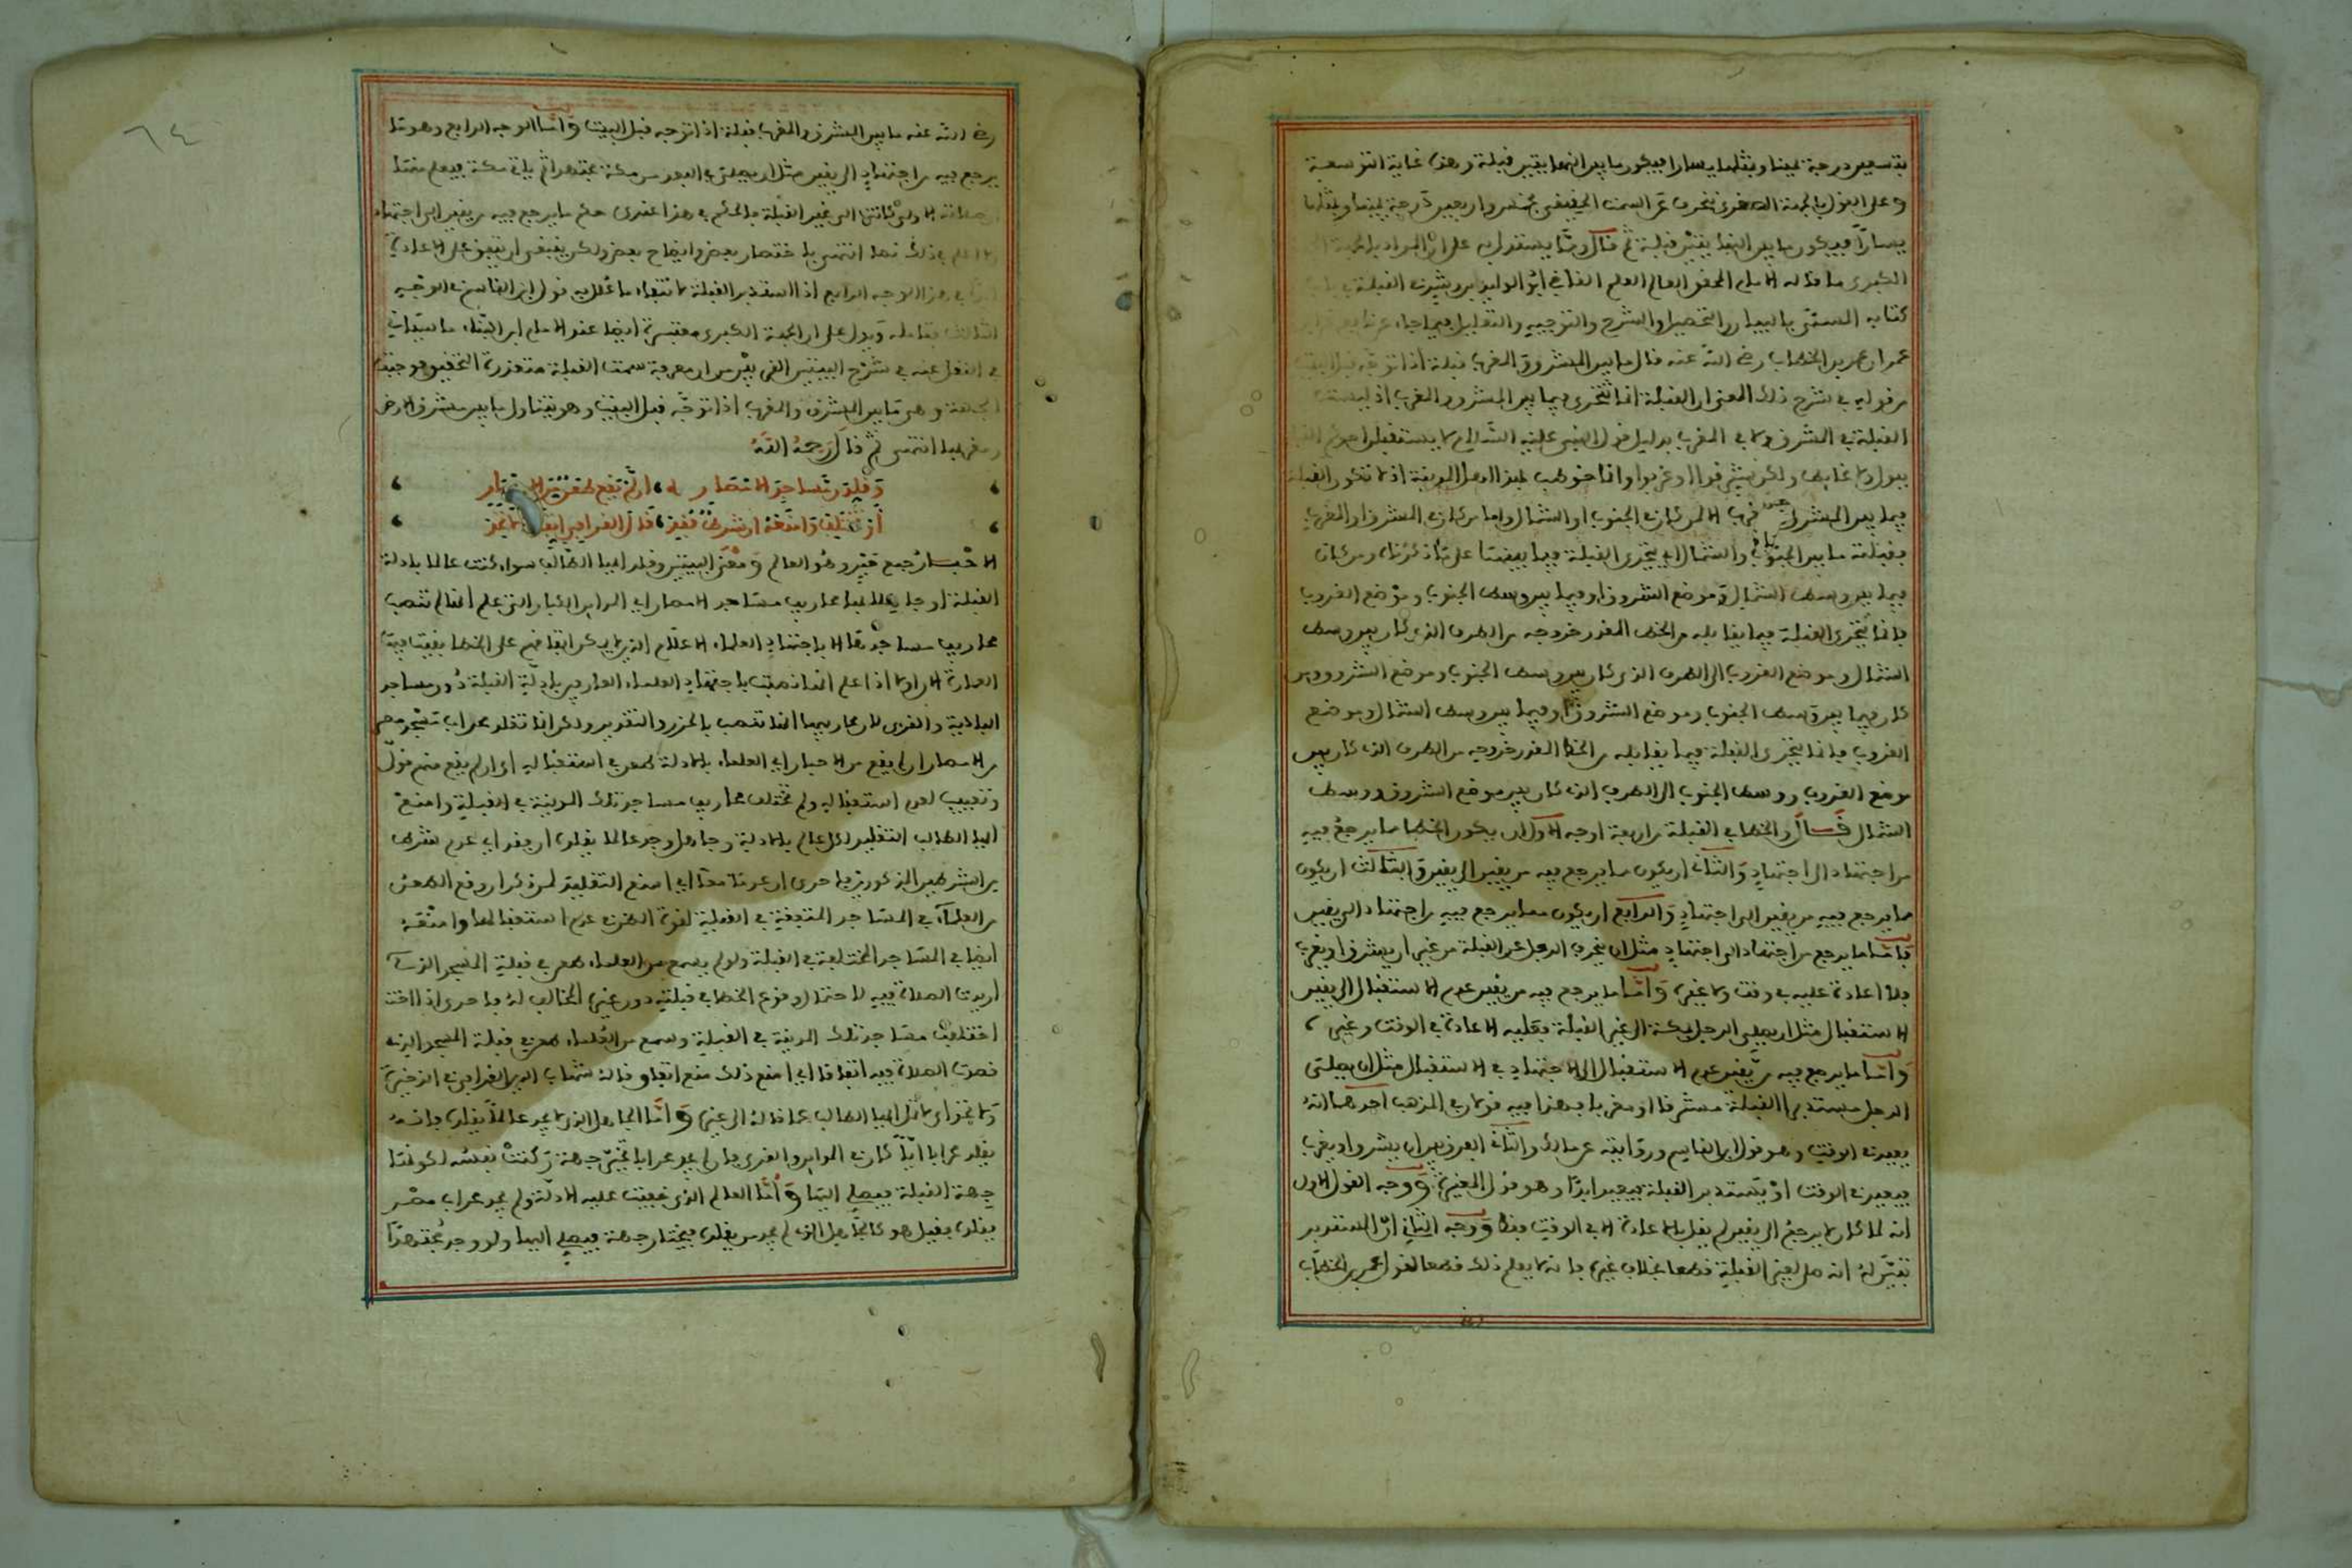 بتسعين درجة يمينا ومثلها يسارا فيكون ما بين انهما بقيتين قبلة وهذا غاية التوسعة
وعلى القول بالجهة الصغرى ينحرف عن السمت الحقيقي بخمس واربعين درجة يمينا ومثلها
يسارا فيكون ما بين قبلة ثم قال ومما يستدل به على ان المراد بالجهة
الكبرى ما قاله الامام المحقق العالم العلم القاضي ابو الوليد بن رشد في القبلة
كتابه المسمى بالبيان والتحصيل والشرح والتوجيه والتعليل فيما جاء عن نافع
عمر ان عمر بن الخطاب رضي الله عنه قال ما بين المشرق والمغرب قبلة اذا توجه قبل البيت
من قوله في شرح ذلك المعنى ان القبلة انما تتحرى فيما بين المشرق والمغرب اذ ليست
القبلة في المشرق ولا في المغرب بدليل قول النبي عليه السلام لا يستقبل احدكم القبلة
ببول ولا غائط ولكن شرقوا او غربوا وانما خوطب بهذا اهل المدينة اذ لا تكون القبلة
فيما بين المشرق والمغرب الا لمن كان في الجنوب او الشمال واما من كان في المشرق او المغرب
فقبلته ما بين الجنوب والشمال اي يتحرى القبلة فيما بينهما على ما ذكرناه ومن كان
فيما بين وسط الشمال وموضع الشروق او فيما بين وسط الجنوب وموضع الغروب
فانما يتحرى القبلة فيما يقابله من الخط المقدر خروجه من الطرف الذي كان بين وسط
الشمال وموضع الغروب الى الطرف الذي كان بين وسط الجنوب وموضع الشروق ومن
كان فيما بين وسط الجنوب وموضع الشروق او فيما بين وسط الشمال وموضع
الغروب فانما يتحرى القبلة فيما يقابله من الخط المقدر خروجه من الطرف الذي كان بين
موضع الغروب ووسط الجنوب الى الطرف الذي كان بين موضع الشروق ووسط
الشمال قال والخطا في القبلة من اربعة اوجه الاول ان يكون الخطا مما يرجع فيه
من اجتهاد الى اجتهاد والثاني ان يكون مما يرجع فيه من يقين الى يقين والثالث ان يكون
مما يرجع فيه من يقين الى اجتهاد والرابع ان يكون مما يرجع فيه من اجتهاد الى يقين
فاما ما يرجع من اجتهاد الى اجتهاد مثل ان ينحرف الرجل عن القبلة من غير ان يشرق او يغرب
فلا اعادة عليه في وقت ولا غيره واما ما يرجع فيه من يقين عدم الاستقبال الى يقين
الاستقبال مثل ان يصلي الرجل بمكة الى غير القبلة فعليه الاعادة في الوقت وغيره
واما ما يرجع فيه من يقين عدم الاستقبال الى الاجتهاد في الاستقبال مثل ان يصلي
الرجل مستدبر القبلة مشرقا او مغربا ففي هذا فيه قولان في المذهب احدهما انه
يعيد في الوقت وهو قول ابن القاسم وروايته عن مالك والثاني الفرق بين ان يشرق او يغرب
فيعيد في الوقت او يستدبر القبلة فيعيد ابدا وهو قول المغيرة ووجه القول الاول
انه لما كان لا يرجع الى يقين لم يقل بالاعادة الا في الوقت فقط ووجه الثاني ان المستدبر
تبين له انه صلى لغير القبلة قطعا بخلاف غيره فانه لا يعلم ذلك قطعا لقول عمر بن الخطاب
٦٤
رضي الله عنه ما بين المشرق والمغرب قبلة اذا توجه قبل البيت واما الوجه الرابع وهو ما
يرجع فيه من اجتهاد الى يقين مثل ان يصلي في البعد من مكة مجتهدا ثم ياتي مكة فيعلم
صلاته الاولى كانت الى غير القبلة فالحكم في هذا عندي حكم ما يرجع فيه من يقين الى اجتهاد
ذلك نصا انتهى باختصار بعض وايضاح بعض ولكن ينبغي ان يتفق على الاعادة
في هذا الوجه الرابع اذا استدبر القبلة
الثالث فتامله ويدل على ان الجهة الكبرى مفسرة ايضا عند الامام ابن البناء ما سياتي
في النقل عنه في شرح البيتين ان معرفة سمت القبلة متعذرة التحقيق فوجبت
الجهة وهي ما بين المشرق والمغرب اذا توجه قبل البيت وهو يتناول ما بين مشرق الارض
ومغربها انتهى ثم قال رحمه الله
وقلدن مساجد الامصار ان لم تقع لطعن الاحبار
او تختلف وامنعه ان شرط فقد قال القرافي اتفاقا
الاحبار جمع حبر وهو العالم ومعنى البيتين وقلد ايها الطالب سواء كنت عالما بادلة
القبلة او جاهلا بها محاريب مساجد الامصار اي المداين الكبار التي علم انها لم تنصب
محاريب مساجدها الا باجتهاد العلماء الاعلام الذين لا يمكن اتفاقهم على الخطا
العمارة ام لا اذا علم انها نصبت باجتهاد العلماء العارفين بادلة القبلة دون مساجد
البادية والقرى لان محاريبها انها تنصب بالحزر والتقدير ولكن انما تقلد محراب مسجد مصر
من الامصار ان لم يقع من الاحبار اي العلماء بالادلة طعن في استقباله اي ان لم يقع منهم قول
وتعييب لعدم استقباله ولم تختلف محاريب مساجد تلك المدينة في القبلة وامنع
ايها الطالب التقليد لكل عالم بالادلة وجاهل وجد عالما يقلده ان فقد اي عدم شرط
من الشرطين المذكورين فاحرى ان عدما معا اي امنع التقليد لمن ذكر ان وقع الطعن
من العلماء في المساجد المتفقة في القبلة لقوة الظن في عدم استقبالها وامنعه
ايضا في المساجد المختلفة في القبلة ولو لم يسمع من العلماء طعن في قبلة المسجد الذي
اريدت الصلاة فيه لاحتمال وقوع الخطا في قبلته دون غيره المخالف له فاحرى اذا
اختلفت مساجد تلك المدينة في القبلة وسمع من العلماء طعن في قبلة المسجد الذي
قصدت الصلاة فيه اتفاقا اي امنع ذلك منع اتفاق قاله شهاب الدين القرافي في الذخيرة
ايها الطالب عما قاله الى غيره واما الجاهل الذي لا يجد عالما يقلده فانه
يقلد محرابا ايا كان في المداين والقرى فان لم يجد محرابا تخير جهة ركنت نفسه لكونها
جهة القبلة فيصلي اليها واما العالم الذي خفيت عليه الادلة ولم يجد محراب مصر
يقلده فقيل هو كالجاهل الذي لم يجد من يقلده فيختار جهة فيصلي اليها ولو وجد مجتهدا